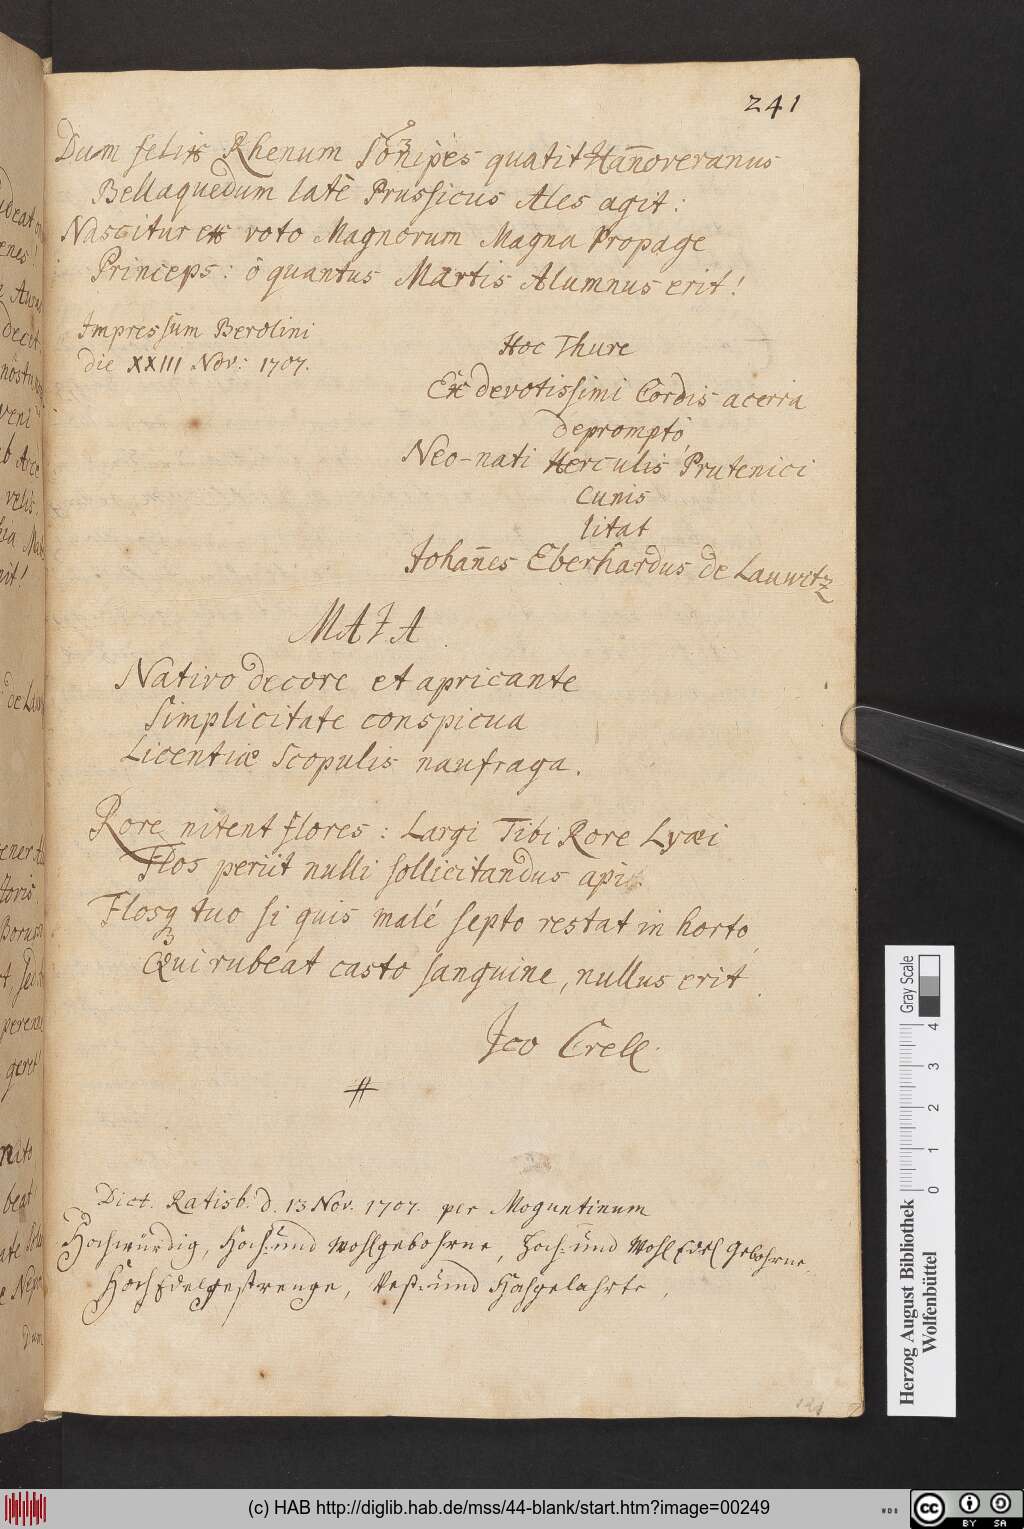 241
Dum felix Rhenum Sonipes quatit Hañoveranus
Bellaquedum latè Prussicus Ales agit:
Nascitur ex voto Magnorum Magna Propage
Princeps: ô quantus Martis Alumnus erit!
Impressum Berolini
die XXIII Nov: 1707.
Hoc Thure
Ex devotissimi Cordis acerra
deprompto,
Neo-nati Herculis Prutenici
cunis
litat
Johañes Eberhardus de Lauwitz
MAJA
Nativo decore et apricante
Simplicitate conspicua
Licentiæ Scopulis naufraga.
Rore nitent flores: Largi Tibi Rore Lyæi
Flos periit nulli sollicitandus api.
Flosq tuo si quis malé septo restat in horto,
Qui rubeat casto sanguine, nullus erit.
Jco Crell.
Dict. Ratisb. d. 13 Nov. 1707. per Moguntinum
Hochwürdig, Hoch- und Wohlgebohrne, Hoch- und Wohl Edel Gebohrne,
Hoch Edelgestrenge, Vest- und Hochgelahrte,
udeat
enes!
decet
veni
ab Arce
velis.
nit!
de Lau
ener
floris
geret!
Dum
Herzog August Bibliothek
Wolfenbüttel
0 1 2 3 4
Gray Scale
(c) HAB http://diglib.hab.de/mss/44-blank/start.htm?image=00249
WDB
cc BY SA